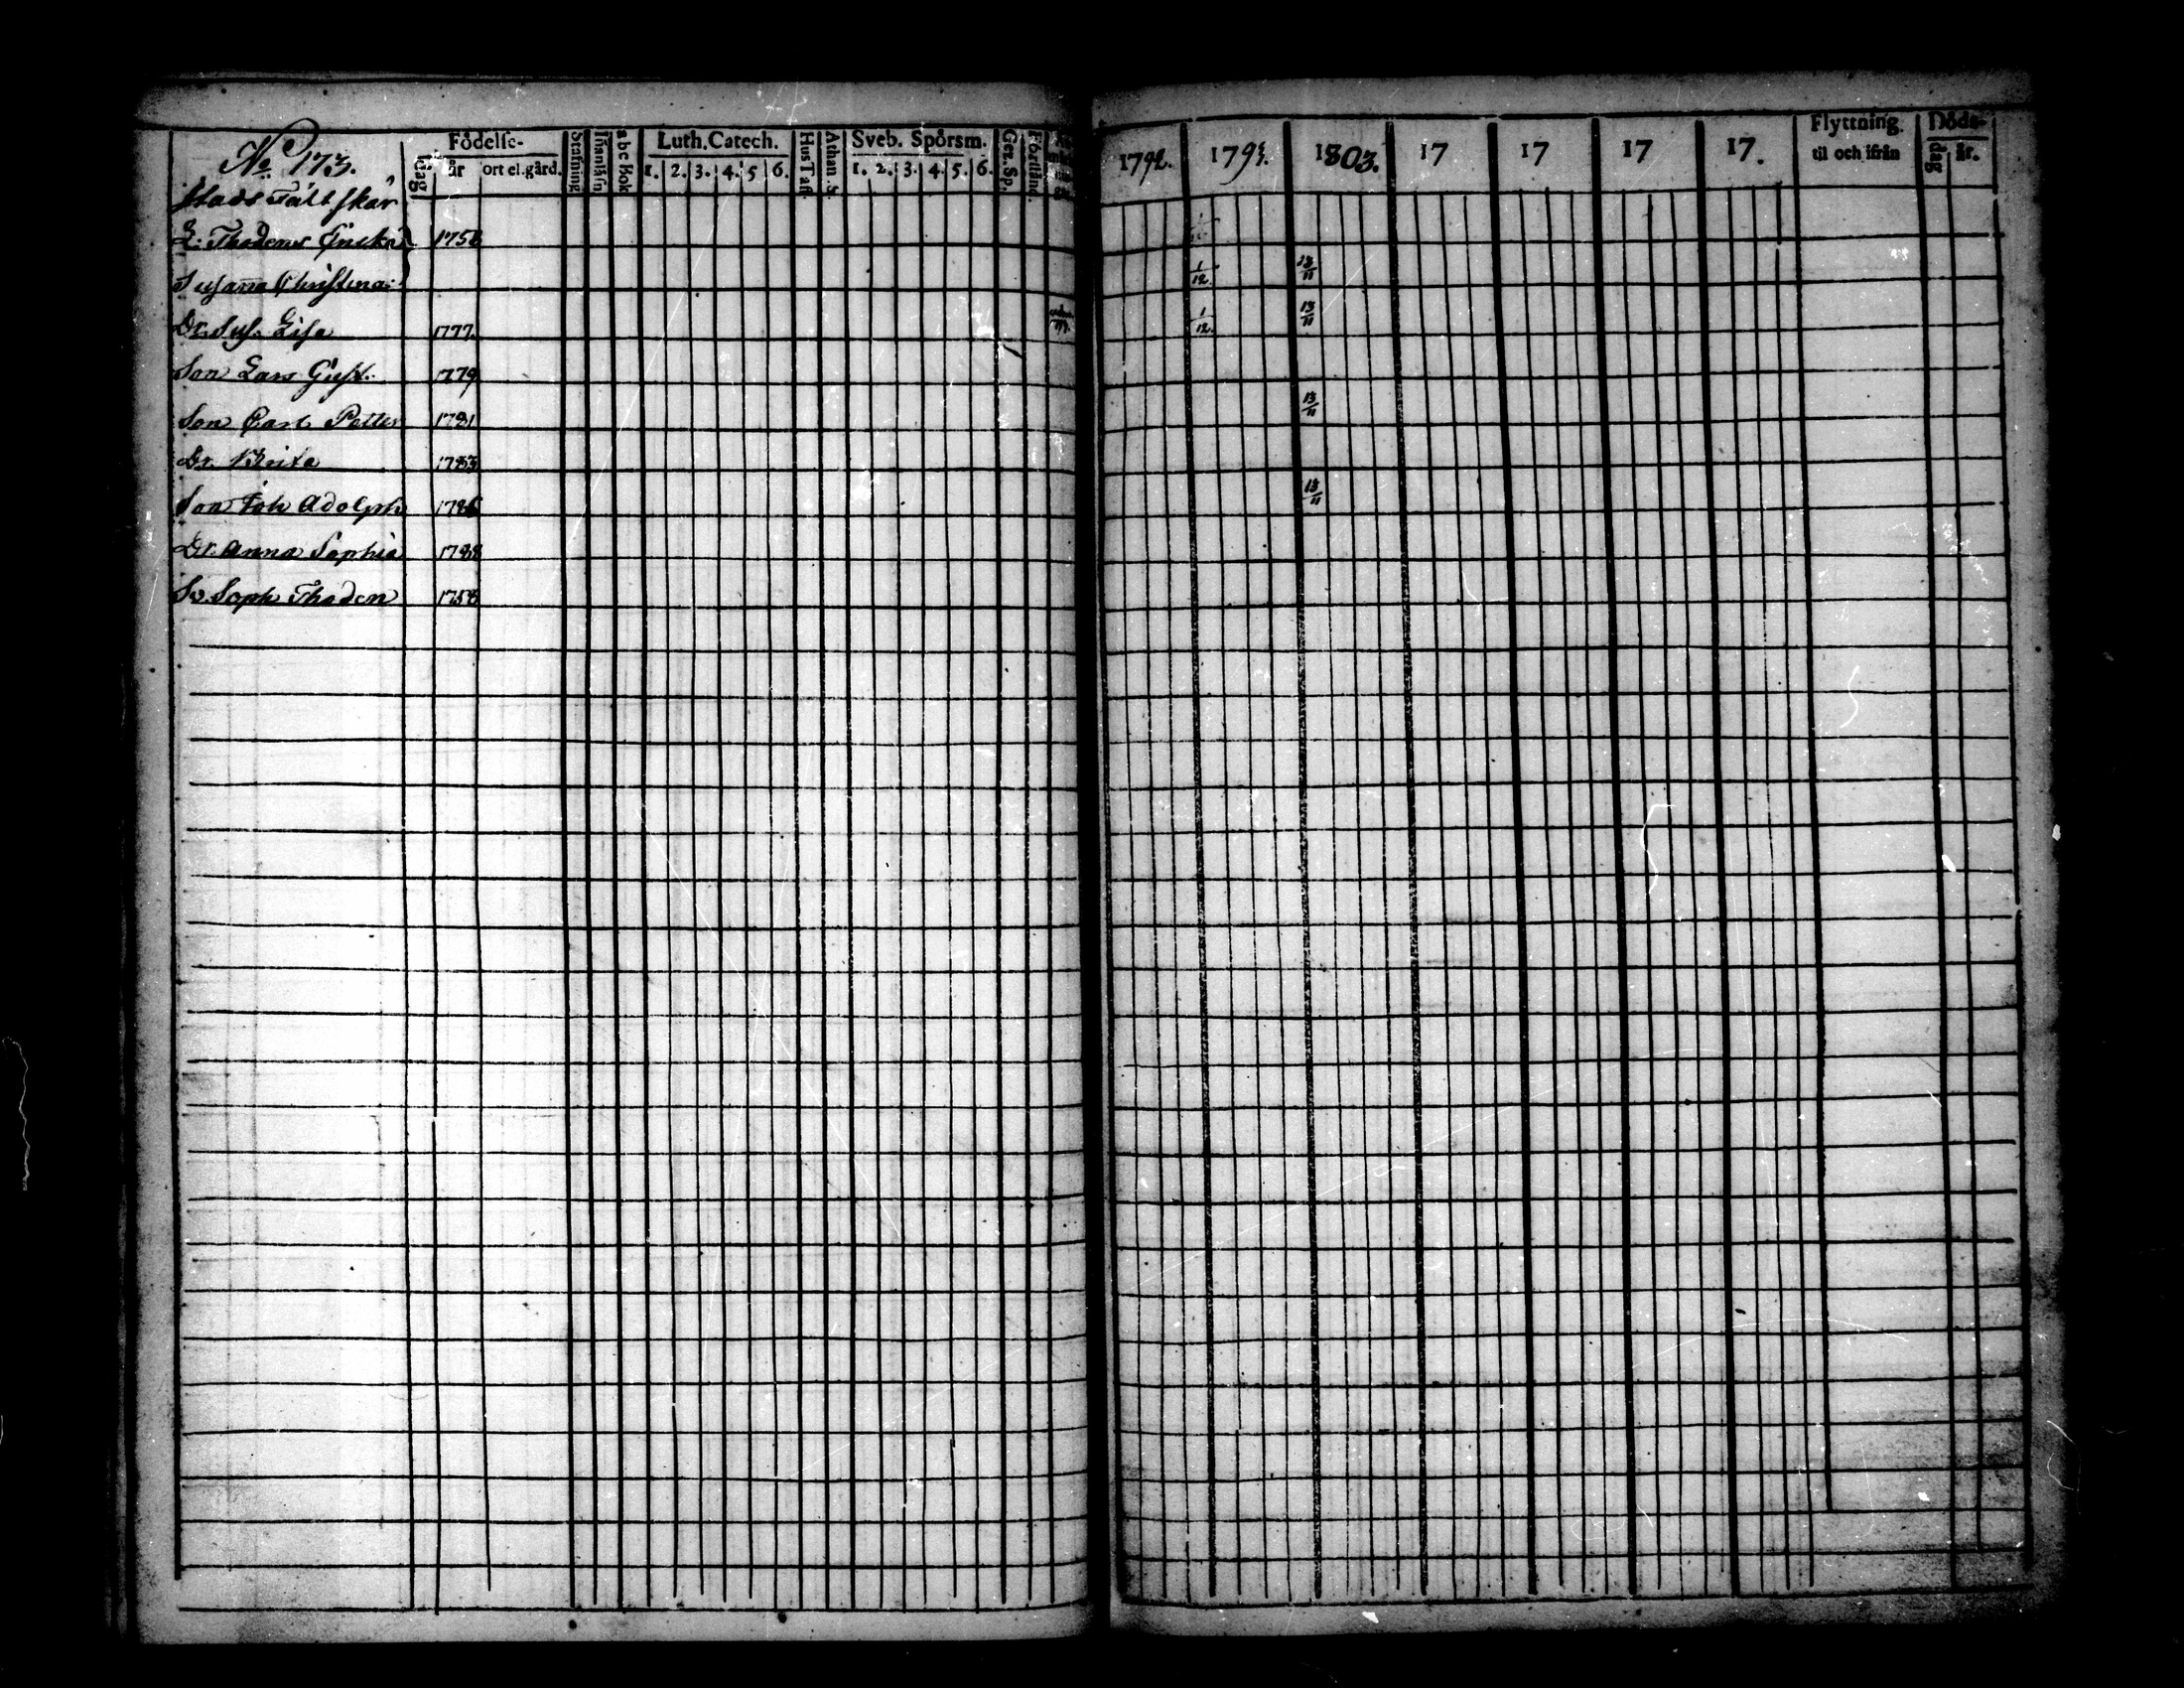 No 173.
Födelse-
dag
år
ort el. gård.
Stafning
Iñanläsn
abc Bok
Luth. Catech.
1. 2. 3. 4. 5 6.
Hus Tafl.
Athan. S.
Sveb. Spörsm.
1. 2. 3. 4. 5. 6.
Gez. Sp.
Förstånd.
1792. 1793. 1803. 17 17 17 17.
Flyttning.
til och ifrån
Döds-
dag
år.
Stads Fält skär
L: Thodens Encka 1758
Susana Christina: 1/12. 13/11
Dr. Sus. Lisa 1777. 1/12. 13/11
Son Lars Gust. 1779
Son Carl Petter 1781 13/11
Dr. Brita 1783
Son Joh Adolph 1786 13/11
Dr. Anna Sophia 1788
Sv. Soph Thoden 1758